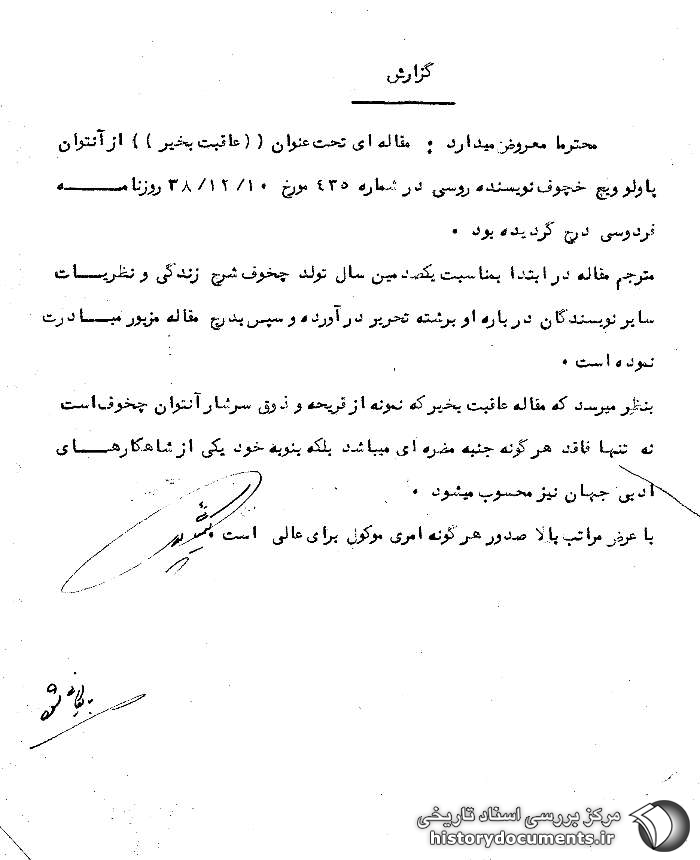 گزارش
محترما معروض میدارد : مقاله ای تحت عنوان ((عاقبت بخیر)) از آنتوان
پاولو ویچ خچوف نویسنده روسی در شماره ٤٣٥ مورخ ٣٨/١٢/١٠ روزنامـــــه
فردوسی درج گردیده بود .
مترجم مقاله در ابتدا بمناسبت یکصدمین سال تولد چخوف شرح زندگی و نظریـــات
سایر نویسندگان در باره او برشته تحریر در آورده و سپس بدرج مقاله مزبور مبـادرت
نموده است .
بنظر میرسد که مقاله عاقبت بخیر که نمونه از قریحه و ذوق سرشار آنتوان چخوف است
نه تنها فاقد هر گونه جنبه مضره ای میباشد بلکه بنوبه خود یکی از شاهکارهـــای
ادبی جهان نیز محسوب میشود .
با عرض مراتب بالا صدور هر گونه امری موکول برای عالی است .
مرکز بررسی اسناد تاریخی
historydocuments.ir